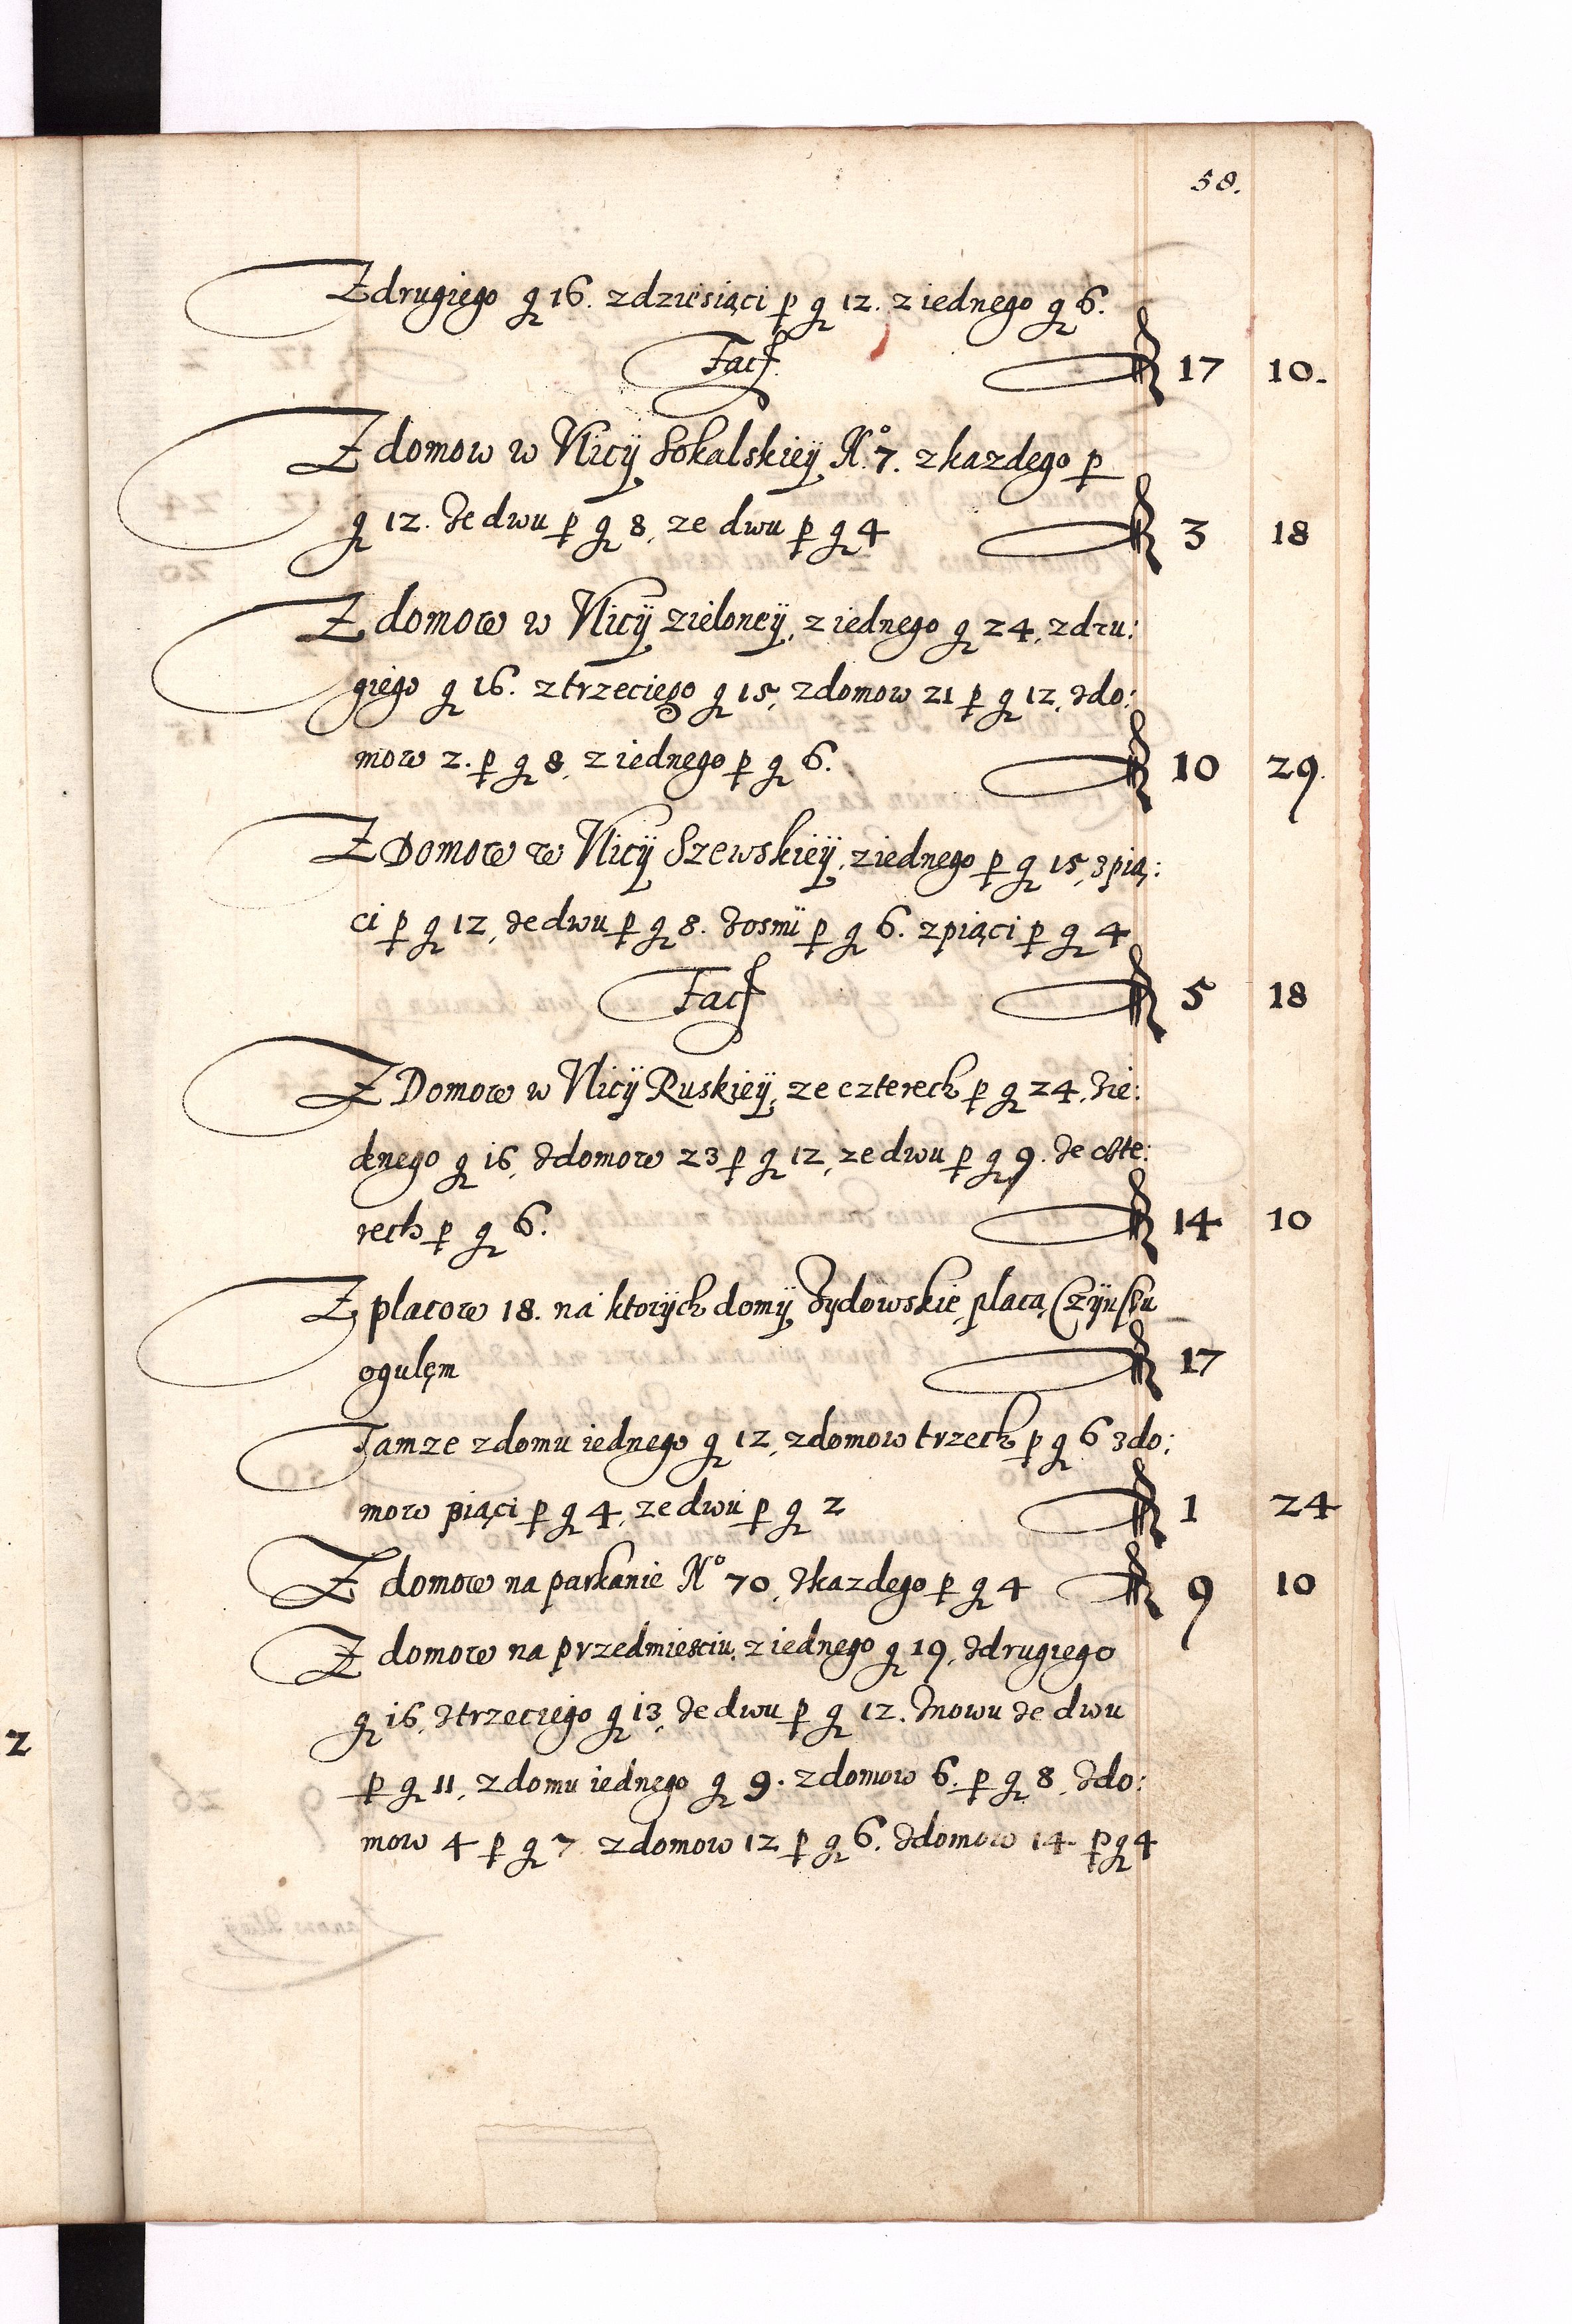 58.
Z drugiego g 16. z dziesiąci p g 12. z iednego g 6.
Facf. 17 10.
Z domow w Vlicÿ Sokalskieÿ N.º 7. z kazdego p
g 12. Ze dwu p g 8, ze dwu p g 4 3 18
Z domow w Vlicÿ zieloneÿ, z iednego g 24, z dru:
giego g 16. z trzeciego g 15, z domow 21 p g 12, z do:
mow 2. p g 8, z iednego p g 6. 10 29.
Z Domow w Vlicÿ Szewskieÿ, z iednego p g 15, z pią:
ci p g 12, Ze dwu p g 8. Z osmï p g 6. z piąci p g 4
Facf 5 18
Z Domow w Vlicÿ Ruskieÿ, ze czterech p g 24, Z ie:
dnego g 16, Z domow 23 p g 12, ze dwu p g 9. Ze czte:
rech p g 6. 14 10
Z placow 18. na ktorÿch domÿ Zydowskie, placą Czÿnszu
ogulęm 17
Tamze z domu iednego g 12, z domow trzech p g 6 z do:
mow piąci p g 4, ze dwu p g 2 1 24
Z domow na parkanie Nº 70, Z kazdego p g 4 9 10
Z domow na przedmiesciu, z iednego g 19, Z drugiego
g 16, Z trzeciego g 13, Ze dwu p g 12. Znowu Ze dwu
p g 11, z domu iednego g 9. z domow 6. p g 8, Z do:
mow 4 p g 7 z domow 12 p g 6. Z domow 14 p g 4
2